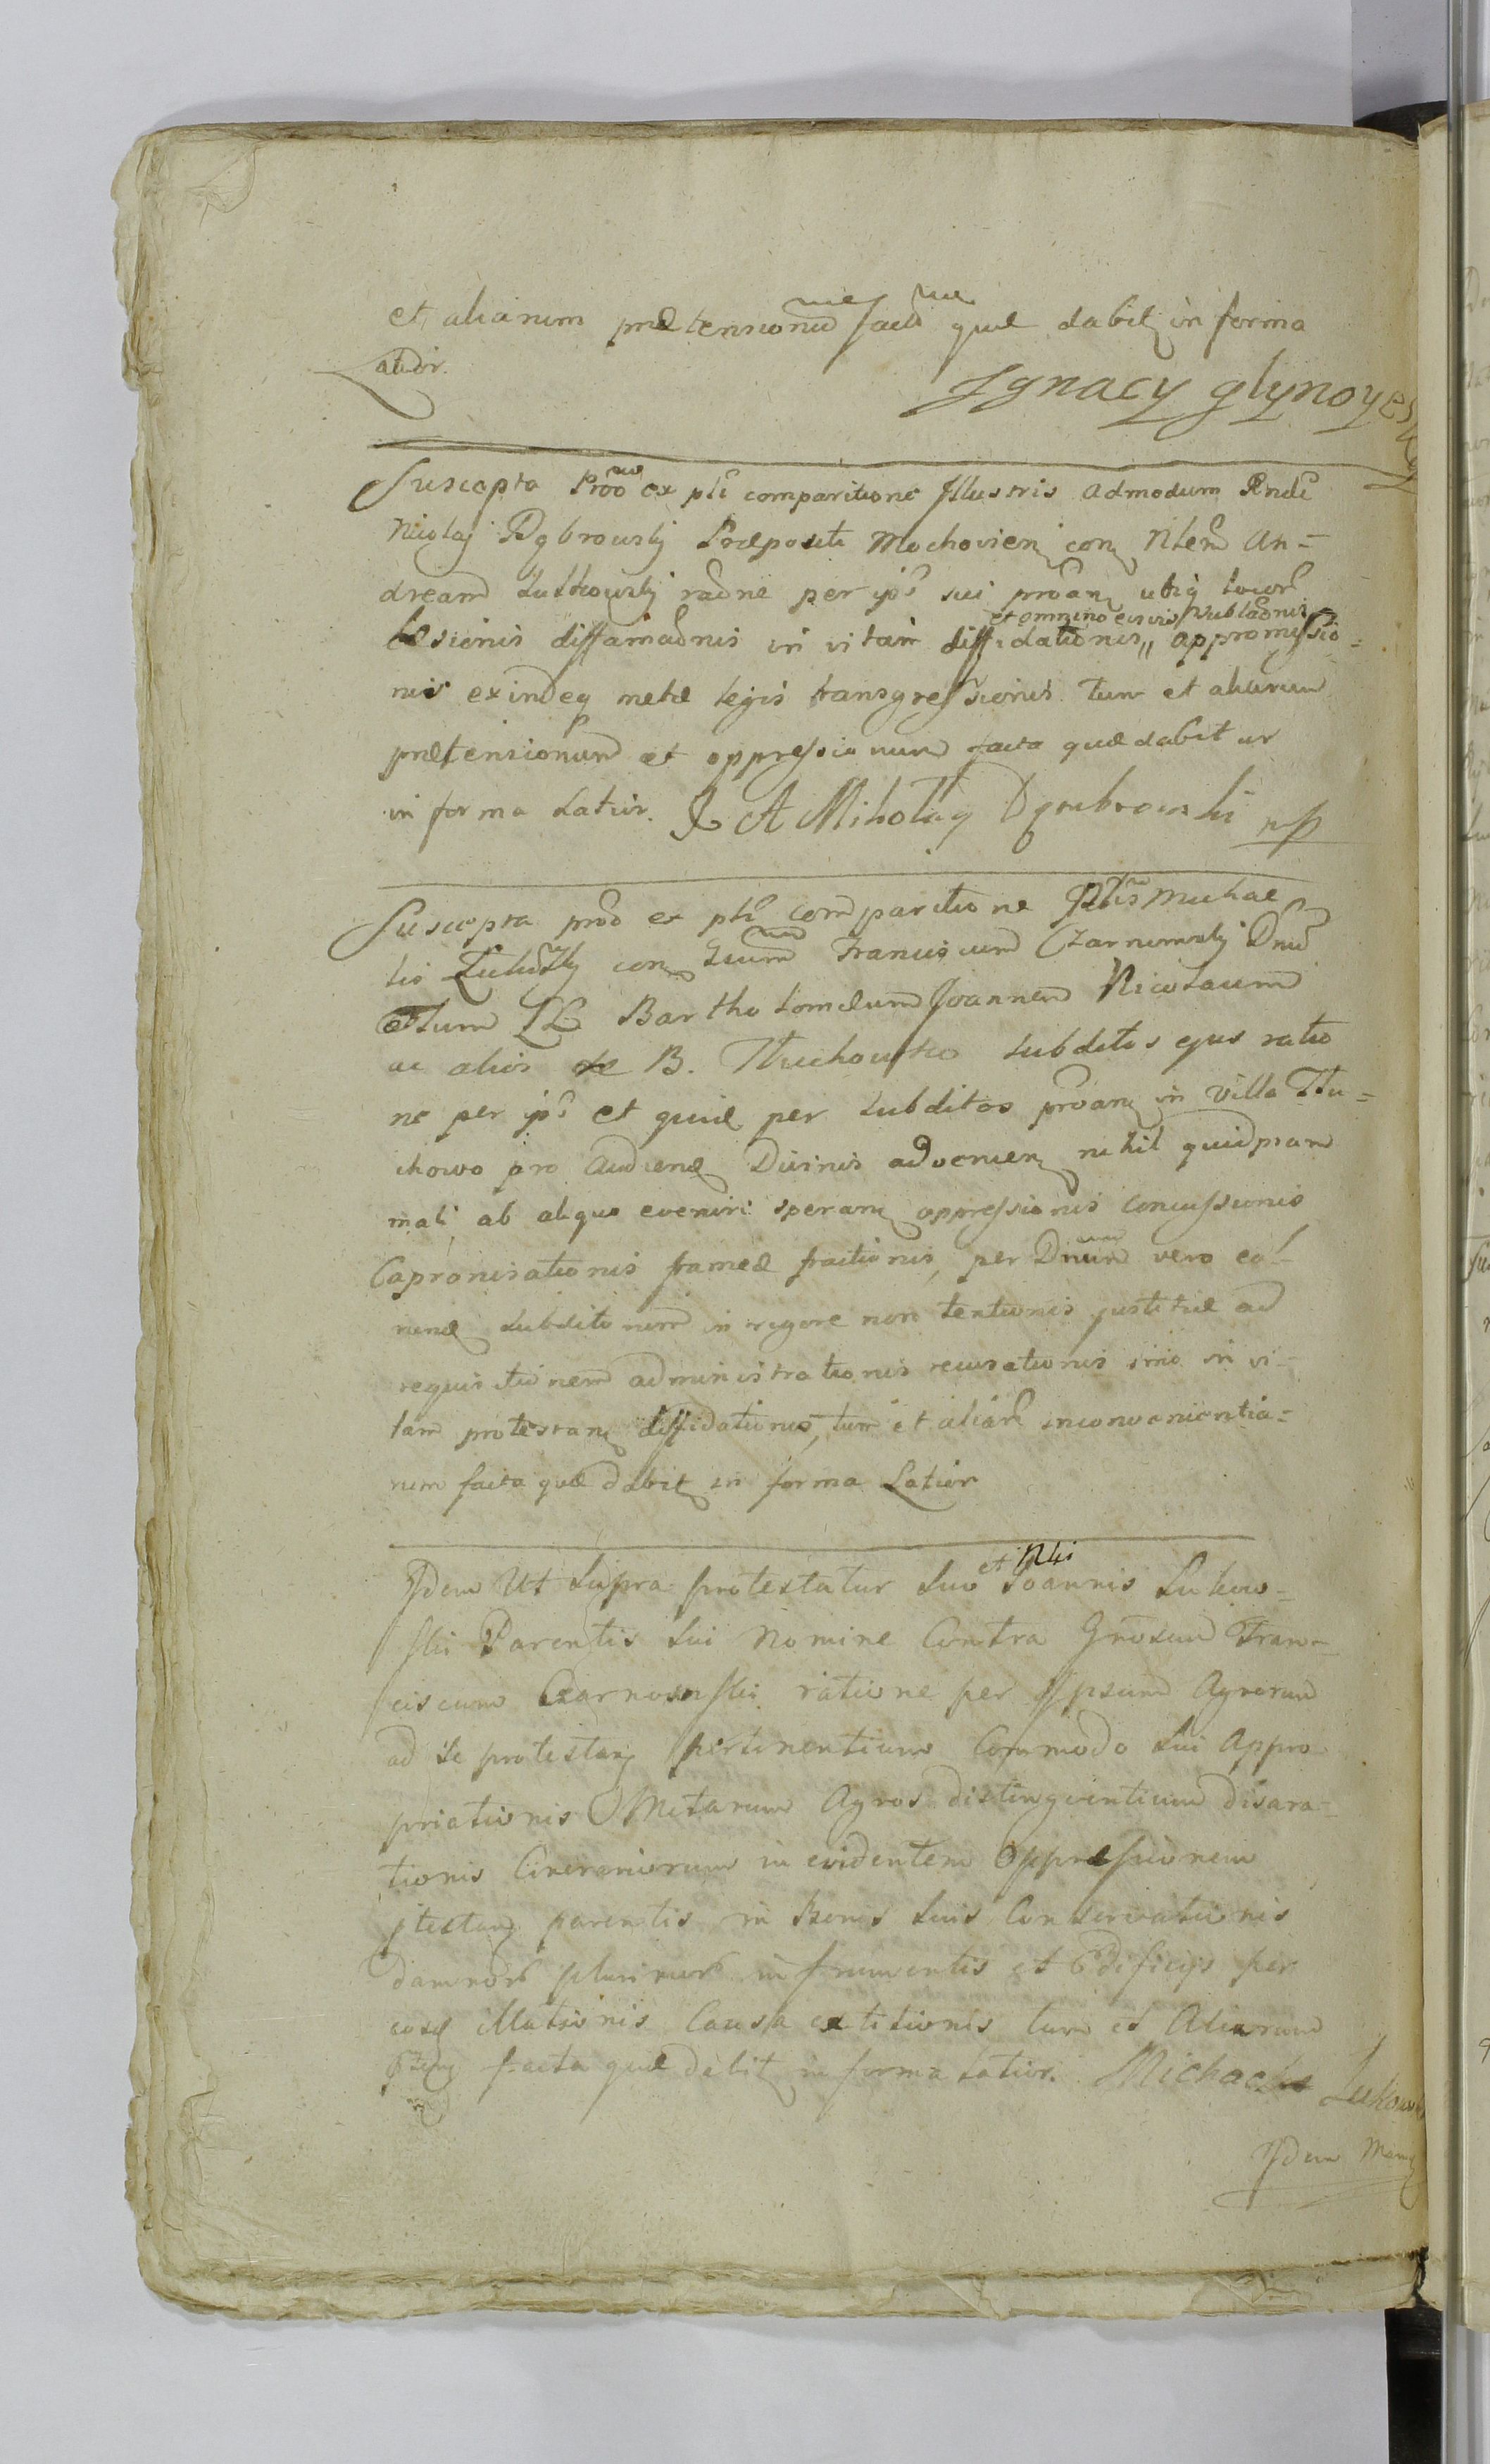 et aliarum prætensionũ facta quæ dabit in forma
latior.
Ignacy glynoye
Suscepta Proõ ex pli comparitione Illustris Admodum Rndi
Nicolaj Dąbrowskj Præpositi Mochovien con Nlem An=
dream Lutkowskj raõne per ips sui proan ubiq locor
et omnino eius subladnis
læsionis diffamaõnis in vitam diffidationis,, appromissio=
nis exindeq metæ legis transgressionis tum et aliarum
prætensionum et oppressionum facta quæ dabit ur
in forma latior. X A Mikołay Dąmbrowski mp
Suscepta proõ ex pli comparitione Nlis Michae
lis Lukoskj con Franciscum Czarnomskj Dnũ
et tum LL Bartholomæum Joannem Nicolaum
ac alios de B. Tłuchowko subditos ejus ratio
ne per ips et quie per subditos proan in Villa Tłu=
chowo pro Audiend Divinis advenien nihil quidpiam
mali ab aliquo eveniri speran oppressionis concussionis
Capronisationis frameæ fractionis, per Dnum vero eo-
rund subditorum in rigore non tentionis justitiæ ad
requisitionem administrationis recusationis imo in vi-
tam protestan diffidationis, tum et aliar inconvenientia=
rum facta quæ dabit in forma Latior
et Nli
Idem Ut Supra protestatur Suo Joannis Lukow-
skii Parentis Sui Nomine Contra Gnosum Fran-
ciscum Czarnomskii ratione per Ipsum Agrorum
ad se protestan pertinentium Commodo Sui Appro
priationis Metarum Agros distingventium disara-
tionis in evidentem Oppressionem
ptestan parentis in Bonis Suis Conservationis
damnor plurimor in frumentis et Ædificijs per
eosd illationis Causa extitionis tum et Aliarum
facta quæ dabit in forma latior. Michael Lukow
Idem